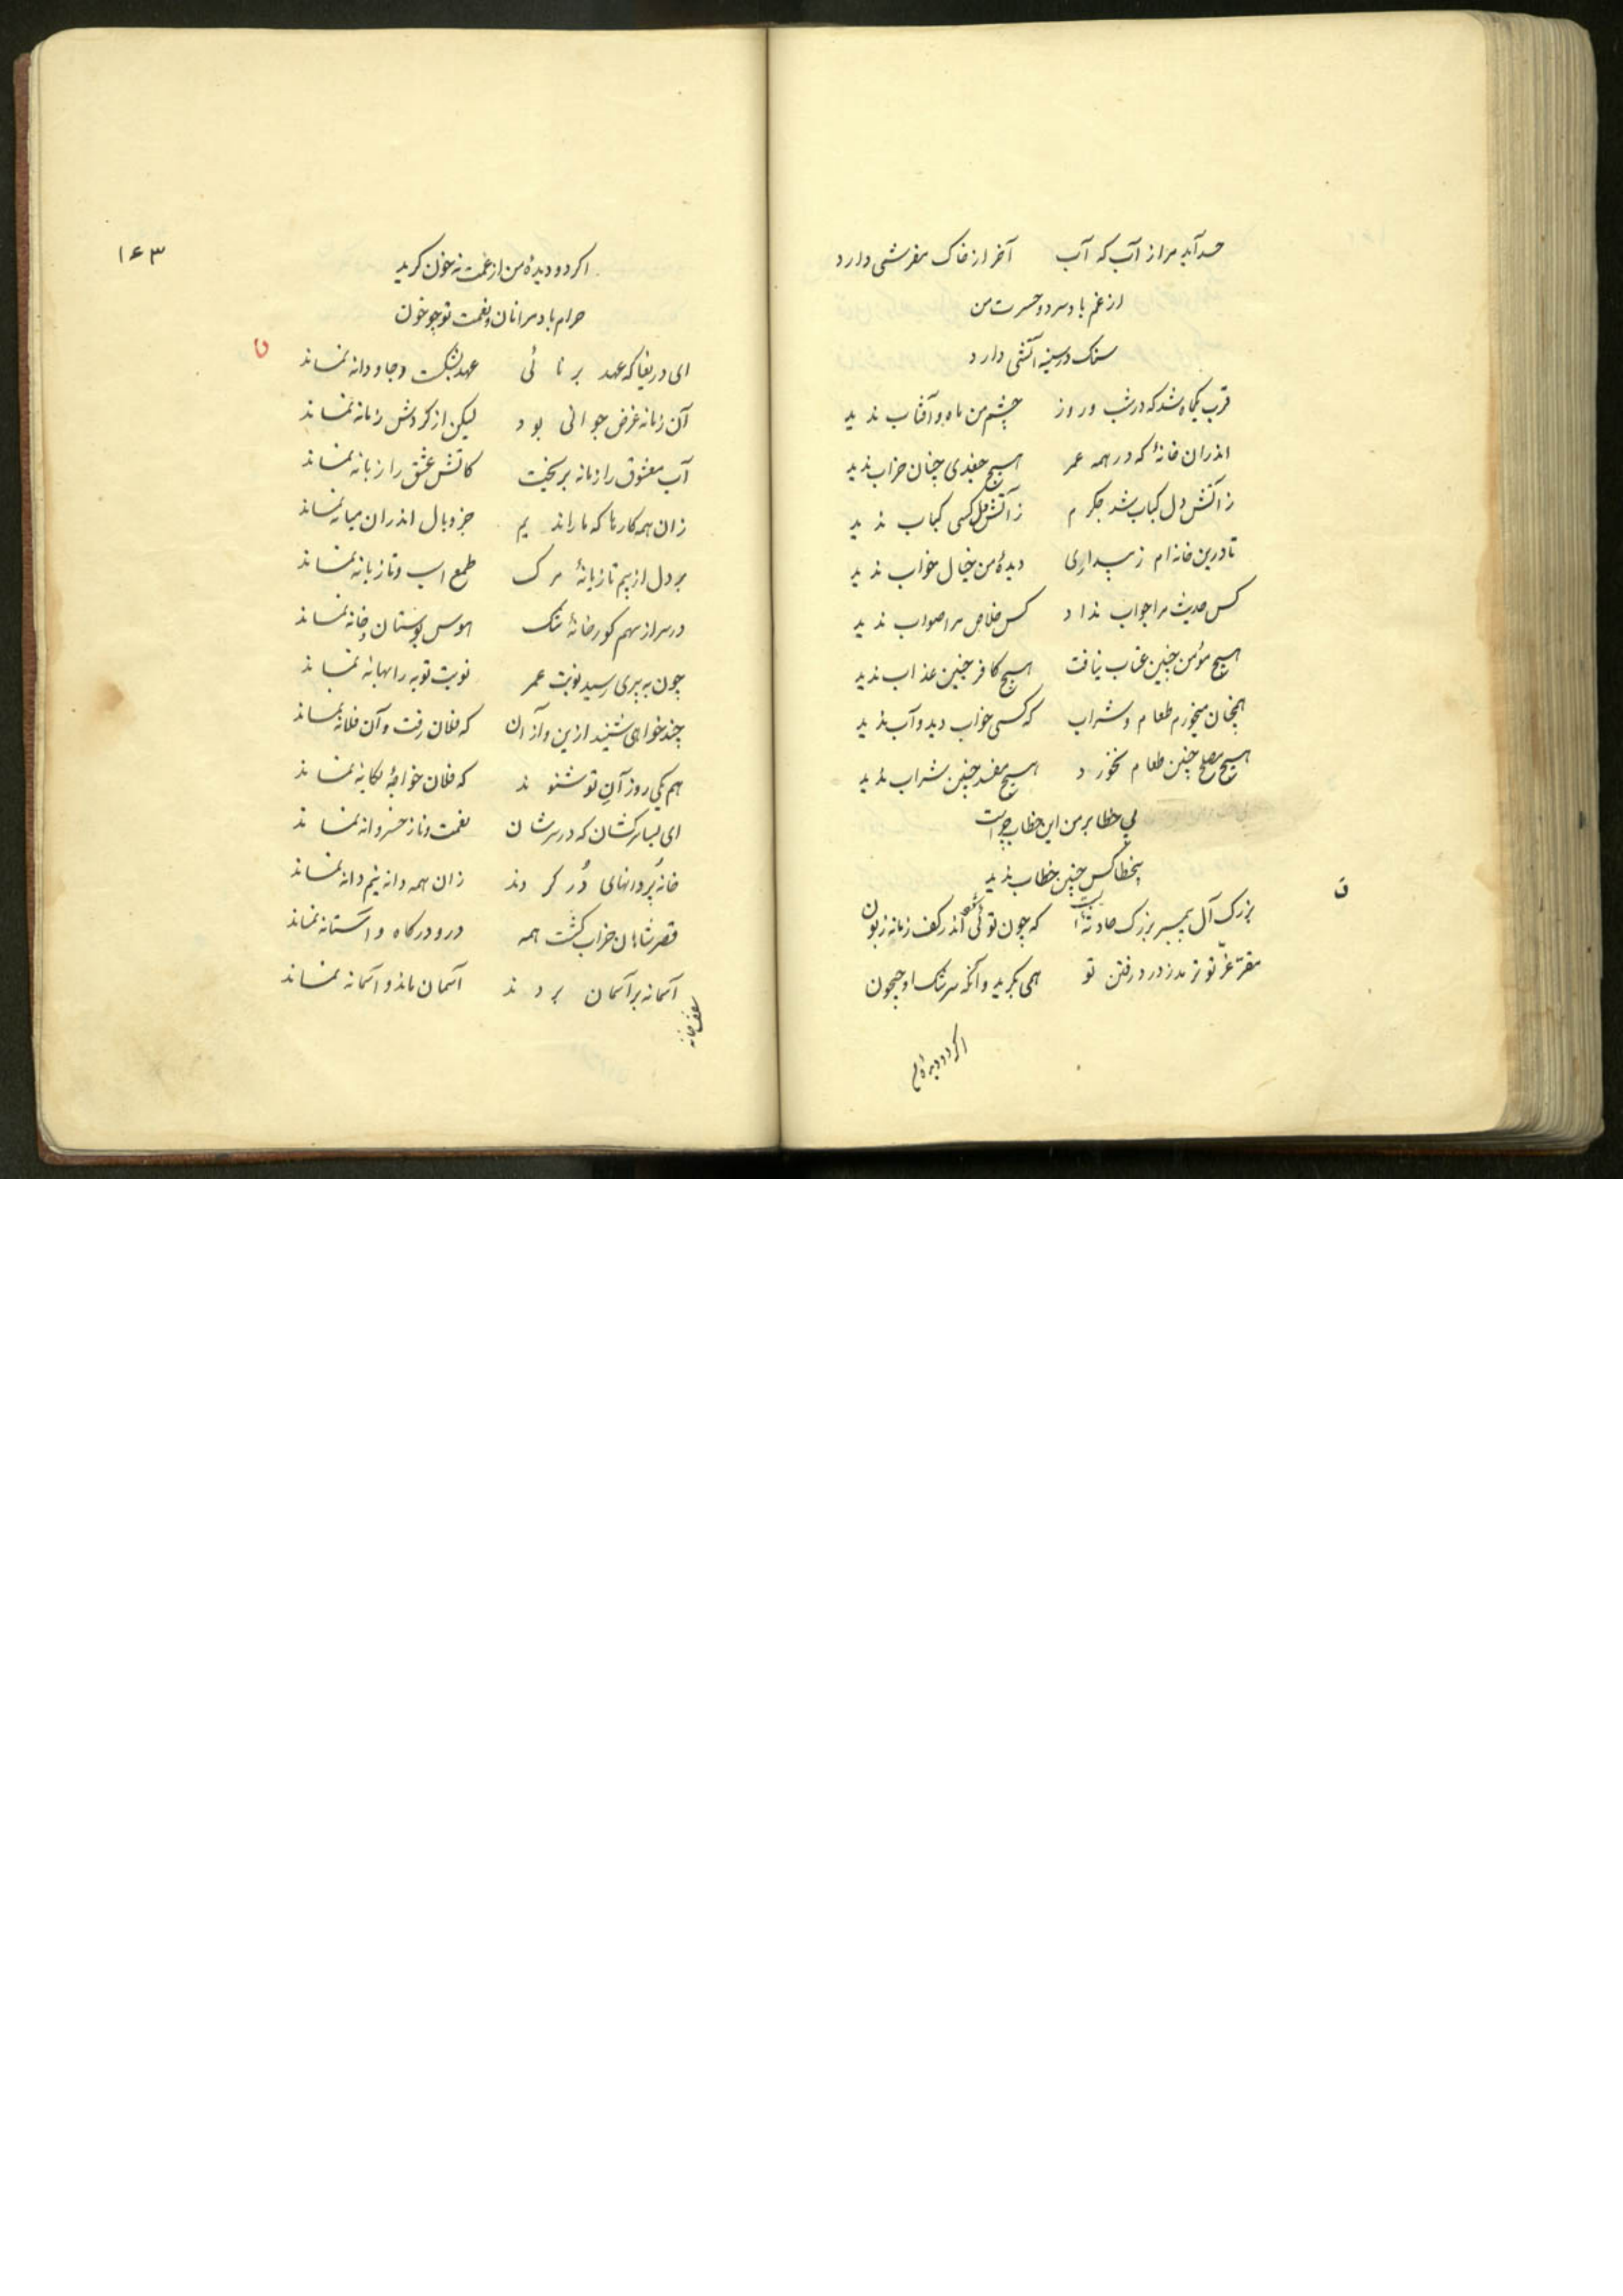 حسد آید مرا از آب که آب آخر از خاک مفرشی دارد
از غم باد سرد و حسرت من
سنک در سینه آتشی دارد
قرب یکماه شد که در شب و روز چشم من ماه و آفتاب ندید
اندران خانهٔ که در همه عمر هیچ جغدی چنان خراب ندید
ز آتش دل کباب شد جکرم ز آتش دل کسی کباب ندید
تا درین خانه‌ام ز بیداری دیدهٔ من خیال خواب ندید
کس حدیث مرا جواب نداد کس خلاص مرا صواب ندید
هیچ مؤمن چنین عتاب نیافت هیچ کافر چنین عذاب ندید
همچنان میخورم طعام و شراب که کسی خواب دید و آب ندید
هیچ مصلح چنین طعام نخورد هیچ مفسد چنین شراب ندید
بی خطا بر من این خطاب چراست
بیخطا کس چنین خطاب ندید
ن
بزرک آل پیمبر بزرک حادثهٔ است که چون توئی شده اندر کف زمانه زبون
مقر عز تو در رفتن تو همی بکرید وآنکه سرشک او جیحون
اکر دو دیدهٔ م
۱۶۳
اکر دو دیدهٔ من از غمت نه خون کرید
حرام باد مرا نان و نعمت تو چو خون
ن
ای دریغا که عهد برنائی عهد بشکست و جاودانه نماند
آن زمانه غرض جوانی بود لیکن از کردش زمانه نماند
آب معشوق را زمانه بریخت کاتش عشق را زبانه نماند
زان همه کارها که ما راندیم جز وبال اندران میانه نماند
بر دل از بیم تازیانهٔ مرک طمع اسب و تازیانه نماند
در سر از سهم کورخانهٔ تنک هوس بوستان و خانه نماند
چون به پیری رسید نوبت عمر نوبت توبه را بهانه نماند
چند خواهی شنید ازین و از آن که فلان رفت و آن فلانه نماند
هم یکی روز آن تو شنوند که فلان خواجهٔ یکانه نماند
ای بسا سرکشان که در سرشان نعمت و ناز خسروانه نماند
خانه پر دانهای در کردند زان همه دانه نیم دانه نماند
قصر شاهان خراب کشت همه در و درکاه و آستانه نماند
آسمانه بر آسمان بردند آسمان ماند و آسمانه نماند
سقف خانه